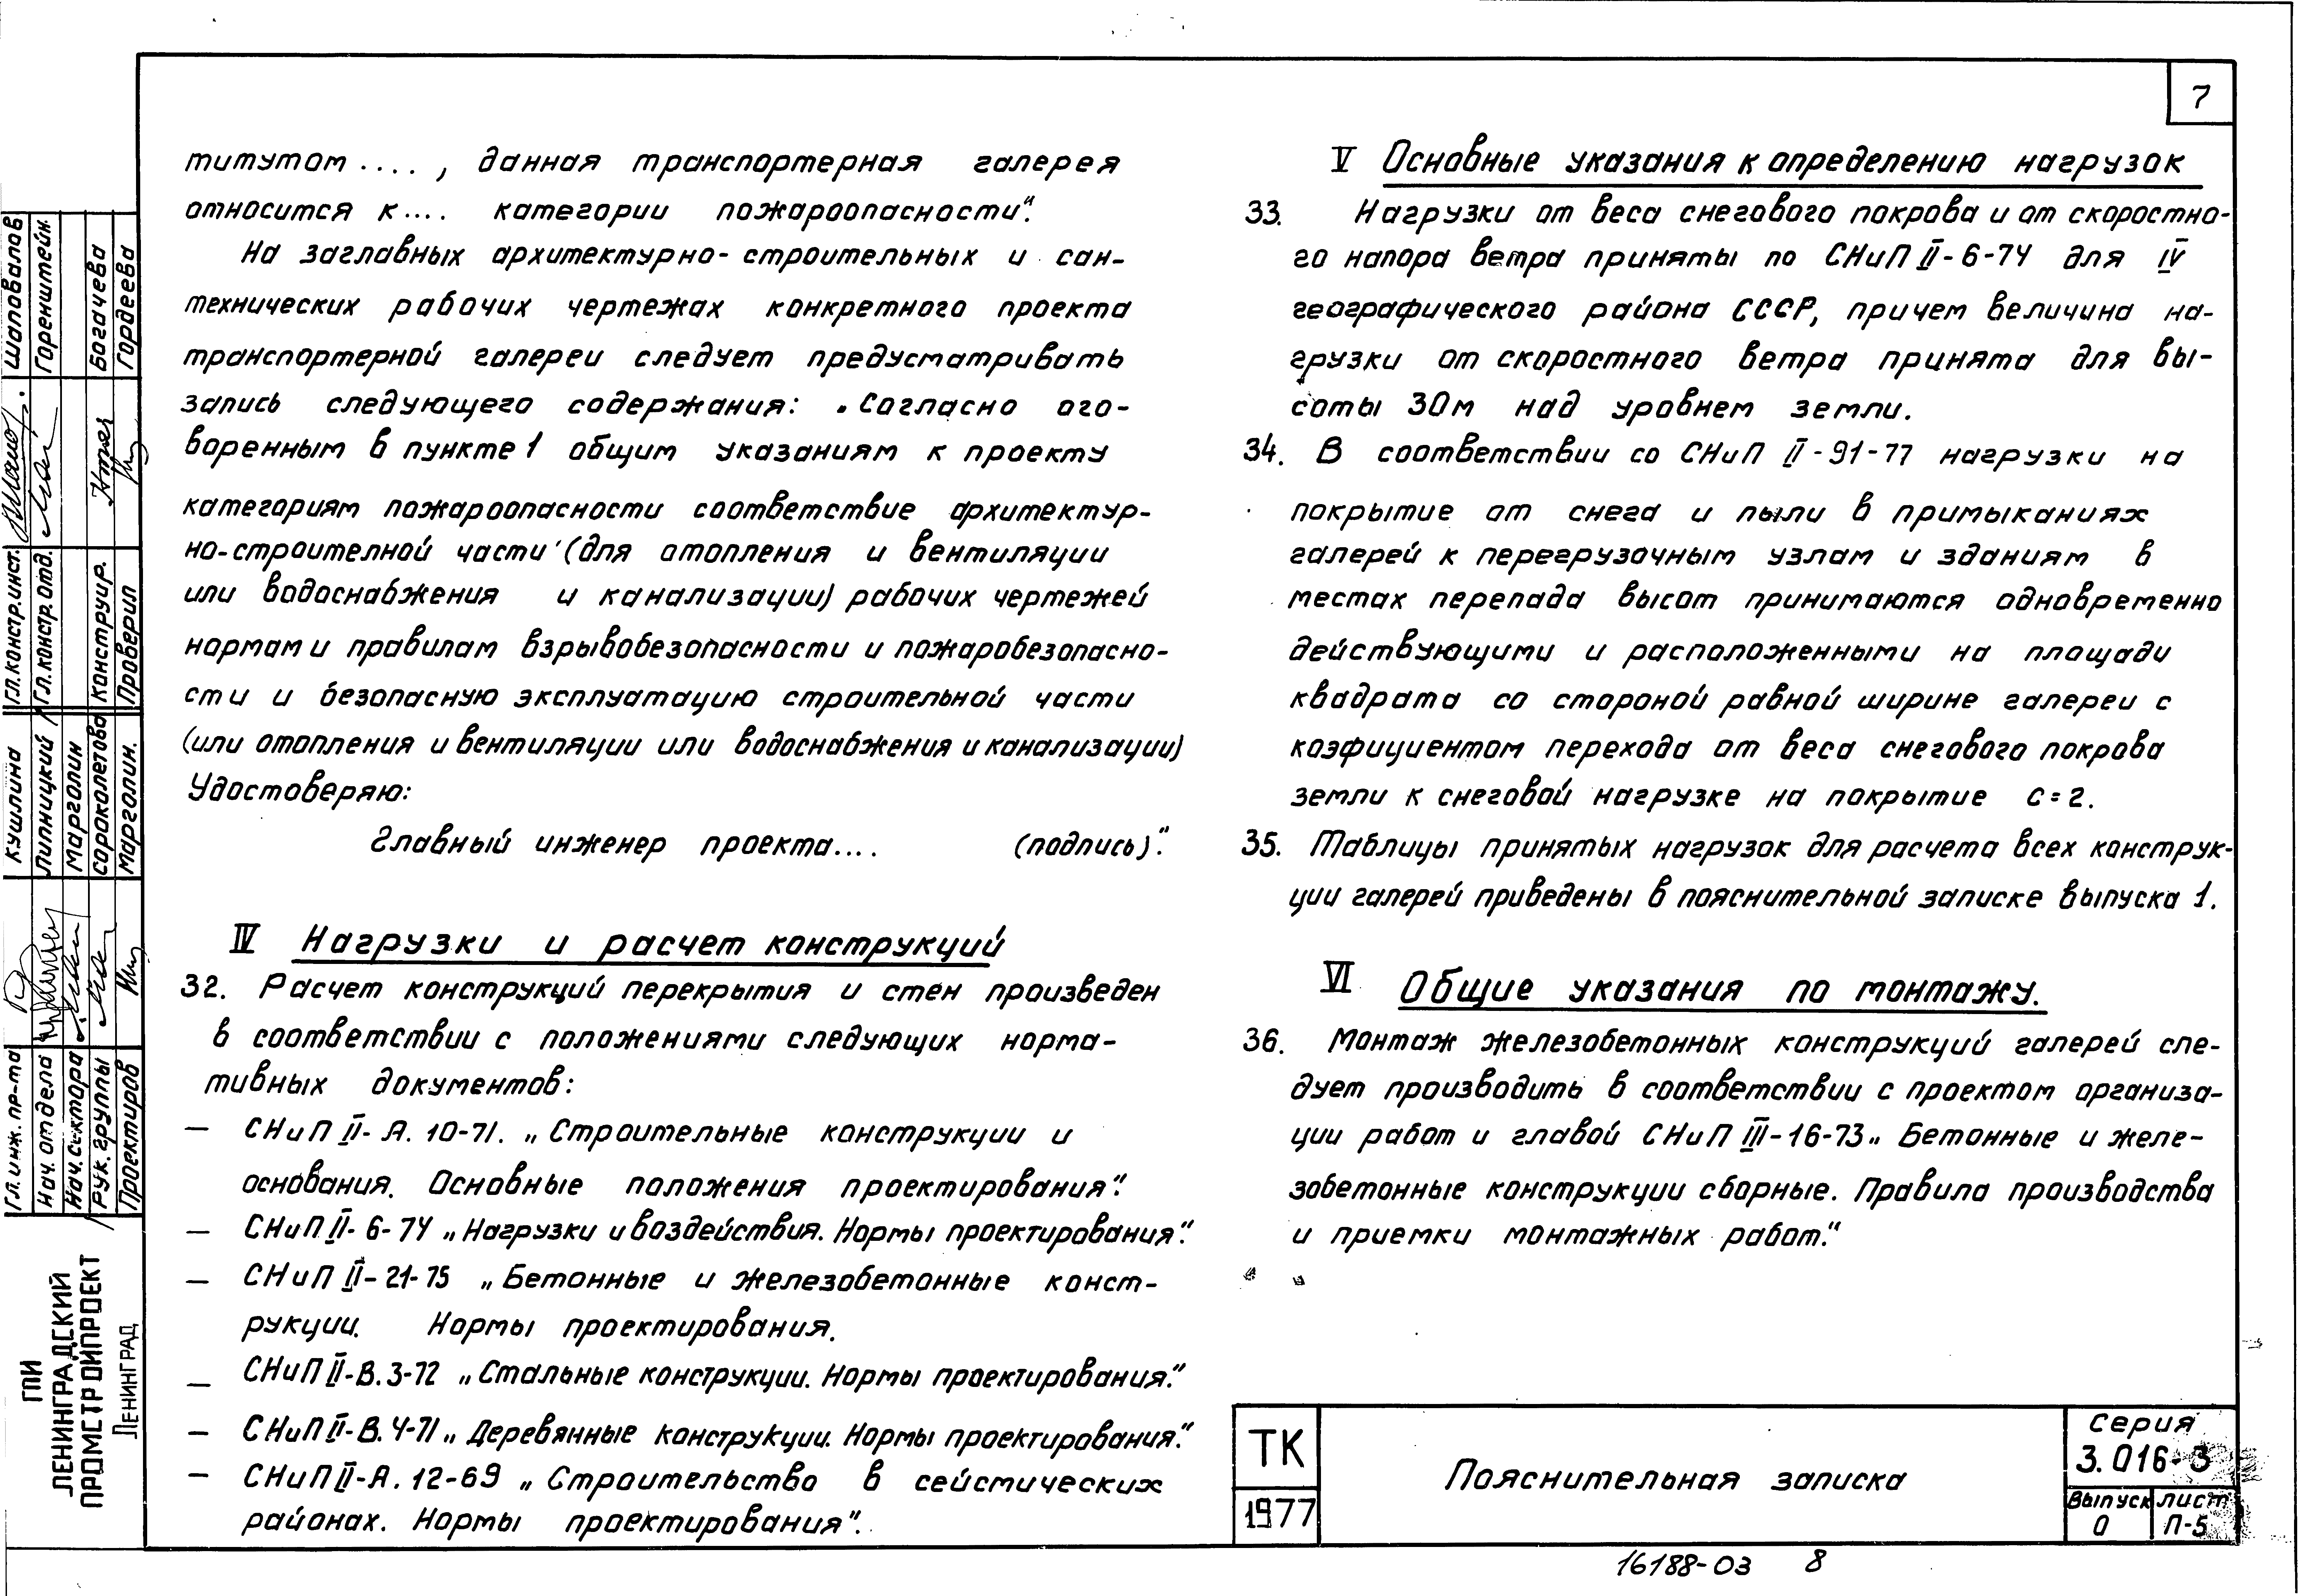 7
титутом ...., данная транспортерная галерея
относится к.... категории пожароопасности".
На заглавных архитектурно-строительных и сан-
технических рабочих чертежах конкретного проекта
транспортерной галереи следует предусматривать
запись следующего содержания: „Согласно ого-
воренным в пункте 1 общим указаниям к проекту
категориям пожароопасности соответствие архитектур-
но-строителной части (для отопления и вентиляции
или водоснабжения и канализации) рабочих чертежей
нормам и правилам взрывобезопасности и пожаробезопасно-
сти и безопасную эксплуатацию строительной части
(или отопления и вентиляции или водоснабжения и канализации)
Удостоверяю:
Главный инженер проекта.... (подпись)".
IV Нагрузки и расчет конструкций
32. Расчет конструкций перекрытия и стен произведен
в соответствии с положениями следующих норма-
тивных документов:
— СНиП II-А. 10-71. „Строительные конструкции и
основания. Основные положения проектирования".
— СНиП II-6-74 „Нагрузки и воздействия. Нормы проектирования".
— СНиП II-21-75 „Бетонные и железобетонные конст-
рукции. Нормы проектирования.
— СНиП II-В.3-72 „Стальные конструкции. Нормы проектирования."
— СНиП II-В.4-71 „Деревянные конструкции. Нормы проектирования."
— СНиП II-А.12-69 „Строительство в сейсмических
районах. Нормы проектирования".
V Основные указания к определению нагрузок
33. Нагрузки от веса снегового покрова и от скоростно-
го напора ветра приняты по СНиП II-6-74 для IV
географического района СССР, причем величина на-
грузки от скоростного ветра принята для вы-
соты 30м над уровнем земли.
34. В соответствии со СНиП II-91-77 нагрузки на
покрытие от снега и пыли в примыканиях
галерей к перегрузочным узлам и зданиям в
местах перепада высот принимаются одновременно
действующими и расположенными на площади
квадрата со стороной равной ширине галереи с
коэфициентом перехода от веса снегового покрова
земли к снеговой нагрузке на покрытие с=2.
35. Таблицы принятых нагрузок для расчета всех конструк-
ции галерей приведены в пояснительной записке выпуска 1.
VI Общие указания по монтажу.
36. Монтаж железобетонных конструкций галерей сле-
дует производить в соответствии с проектом организа-
ции работ и главой СНиП III-16-73 „Бетонные и желе-
зобетонные конструкции сборные. Правила производства
и приемки монтажных работ."
ТК
1977
Пояснительная записка
Серия
3.016-3
Выпуск
0
лист
П-5
16188-03 8
Гл. инж. пр-та Кушлина Гл. констр. инст. Шаповалов
Нач. отдела Липницкий Гл. констр. отд. Горенштейн
Нач. сектора Марголин
Рук. группы Сороколетова Конструир. Богачева
Проектиров Марголин. Проверил Гордеева
ГПИ
ЛЕНИНГРАДСКИЙ
ПРОМСТРОЙПРОЕКТ
ЛЕНИНГРАД